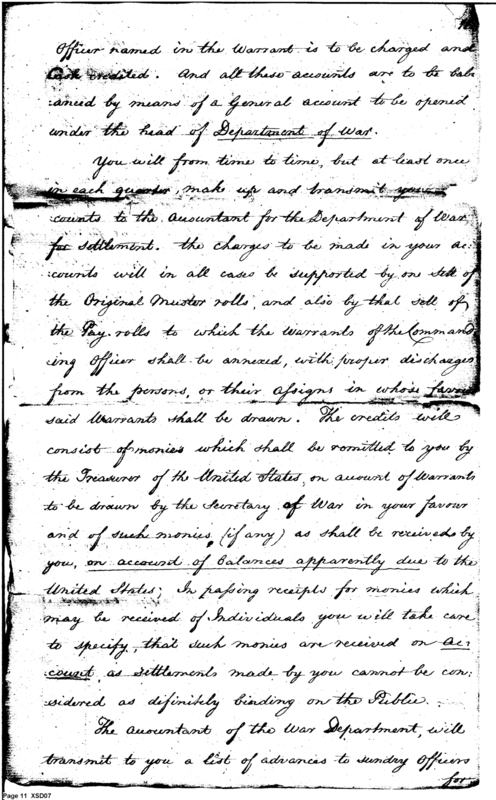 Officer named in the Warrant is to be charged and
Cash credited. And all these accounts are to be bal
anced by means of a General account to be opened
under the head of Department of War.
You will from time to time, but at least once
in each quarter, make up and transmit your
counts to the accountant for the Department of War,
for settlement. The charges to be made in your ac:
:counts will in all cases be supported by one sett of
the Original Muster rolls, and also by that sett of
the Pay rolls to which the Warrants of the Command
ing Officer shall be annexed, with proper discharges
from the persons, or their assigns in whose favor
said Warrants shall be drawn. The credits will
consist of monies which shall be remitted to you by
the Treasurer of the United States, on account of Warrants
to be drawn by the Secretary of War in your favour
and of such monies, (if any) as shall be received by
you, on account of balances apparently due to the
United States; In passing receipts for monies which
may be received of Individuals you will take care
to specify, that such monies are received on Ac:
:count as settlements made by you cannot be con:
sidered as definitely binding on the Public.
The accountant of the War Department, will
transmit to you a list of advances to sundry Officers
for
Page 11 XSD07